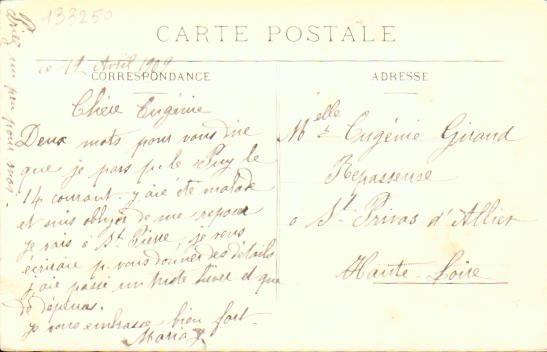 133250
CARTE POSTALE
ce 12 Avril 1909
CORRESPONDANCE
Chère Eugénie
Deux mots pour vous dire
que je pars p. le Puy le
14 courant. y aie été malade
et suis obligée de me reposer
je vais à St Pierre, je vous
écrirai p. vous donner des détails
j'aie passé un triste hiver et que
de dépenses.
je vous embrasse bien fort.
Maria
Priez un peu pour moi.
ADRESSE
Melle Eugénie Giraud
Repasseuse
à St Privas d'Allier
Haute-Loire